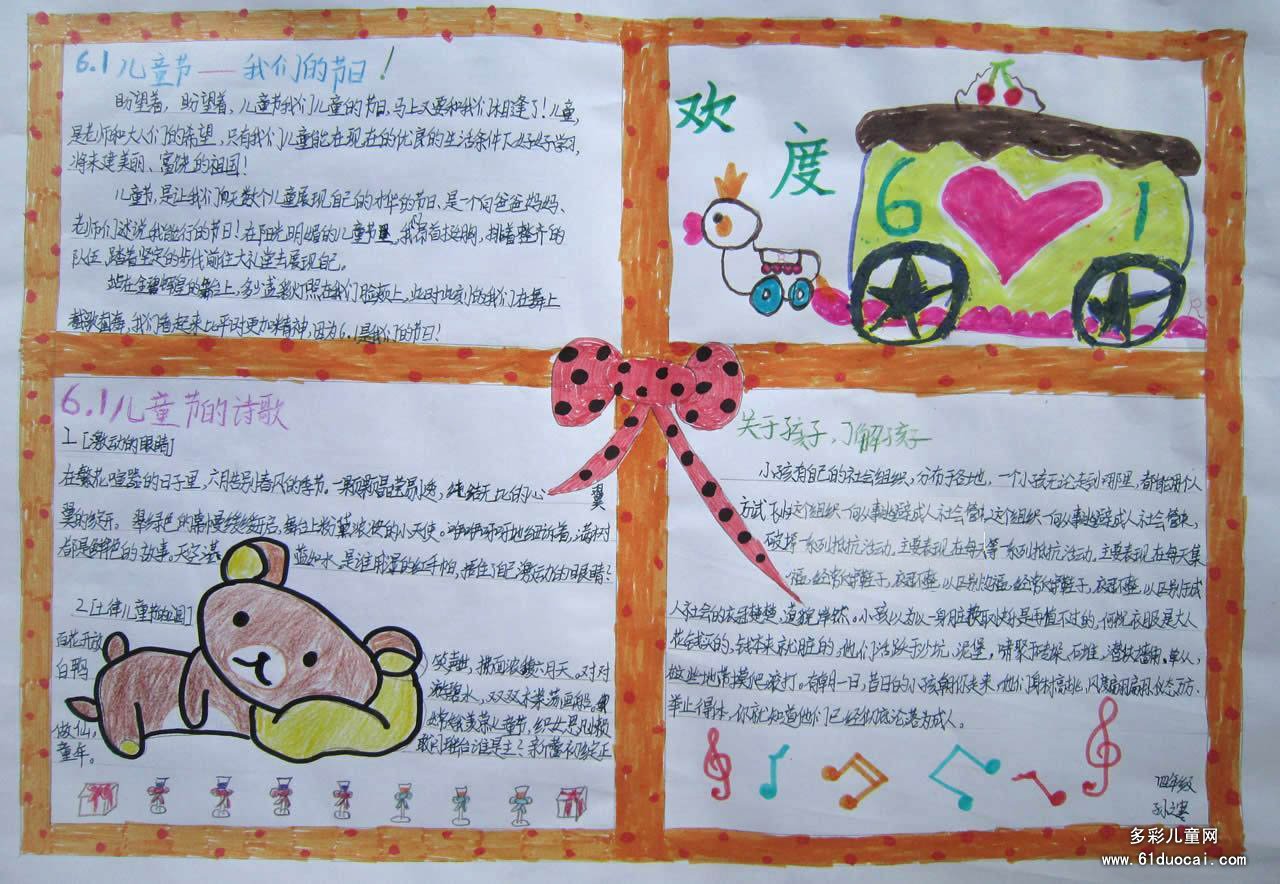 6.1儿童节——我们的节日!
盼望着,盼望着、儿童节我们儿童的节日,马上又要和我们相逢了!儿童,
是老师和大人们的希望,只有我们儿童能在现在的优良的生活条件下好好学习,
将来建美丽、富饶的祖国!
儿童节,是让我们无数个儿童展现自己的才华的节日、是一个向爸爸妈妈、
老师们述说我能行的节日!在阳光明媚的儿童节里,我们昂首挺胸,排着整齐的
队伍,踏着坚定的步伐前往大礼堂去展现自己。
站在金碧辉煌的舞台上,多少盏教灯照在我们脸颊上,此时此刻的我们在舞上
载歌载舞,我们看起来比平时更加精神,因为6.1是我们的节日!
欢
度
6 1
6.1儿童节的诗歌
1[激动的眼睛]
在繁花喧嚣的日子里,六月告别春风的季节。一颗颗晶莹剔透,纯结无比的心 翼
翼的绽乐。翠绿色的幕慢缓缓开启,舞台上粉黛浓妆的小天使。咿咿呀呀地细诉着,满
都是鲜艳的故事。天空湛 蓝如水,是谁用掌的红手帕,捂住了自己激动的眼睛?
2[七律儿童节的校园]
百花开放 笑声甜,拂面浓馥六月天。对对
白鸭 游碧水,双双
做仙。 儿童节。织女思凡
童年。 歌问瑶台谁是主?新蕾初绽正
关于孩子,了解孩子
小孩有自己的社会组织,分布于各地,一个小孩无论走到哪里,都能用个人
方式
破坏一系列抵抗活动。主要表现在每天等一系列抵抗活动。主要表现在每天集
经常穿错鞋子,衣冠不整,以区别 经常穿错鞋子,衣冠不整,以区别于成
人社会的衣冠楚楚,道貌岸然。小孩以为以一身脏获取快乐是再值不过的,何况衣服是大人
花钱买的,钱本来就脏的,他们活跃于沙坑、泥堡。啸聚于砖垛、石堆,潜伏墙角、草从,
做些地黄摸爬滚打。有朝一日,昔日的小孩朝你走来,他们身材高挑,风度翩翩,仪态万方、
举止得体,你就知道他们已经彻底沦落为成人。
四年级
多彩儿童网
www.61duocai.com